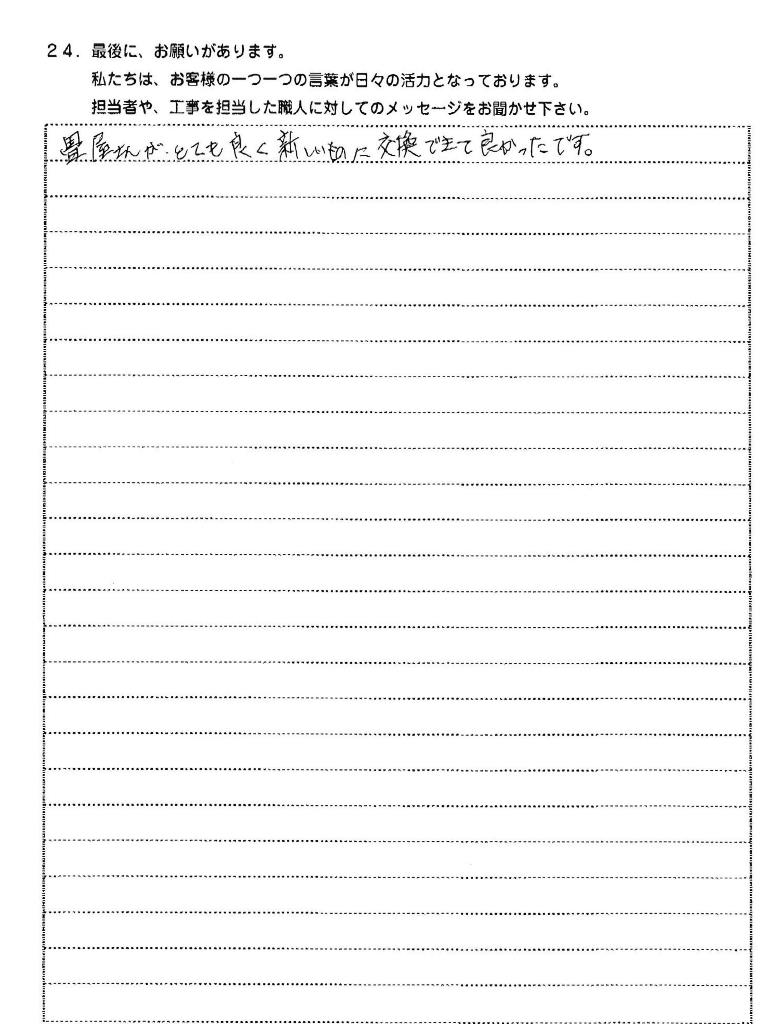 24. 最後に、お願いがあります。
私たちは、お客様の一つ一つの言葉が日々の活力となっております。
担当者や、工事を担当した職人に対してのメッセージをお聞かせ下さい。
畳屋さんが、とても良く新しいものに交換できて良かったです。